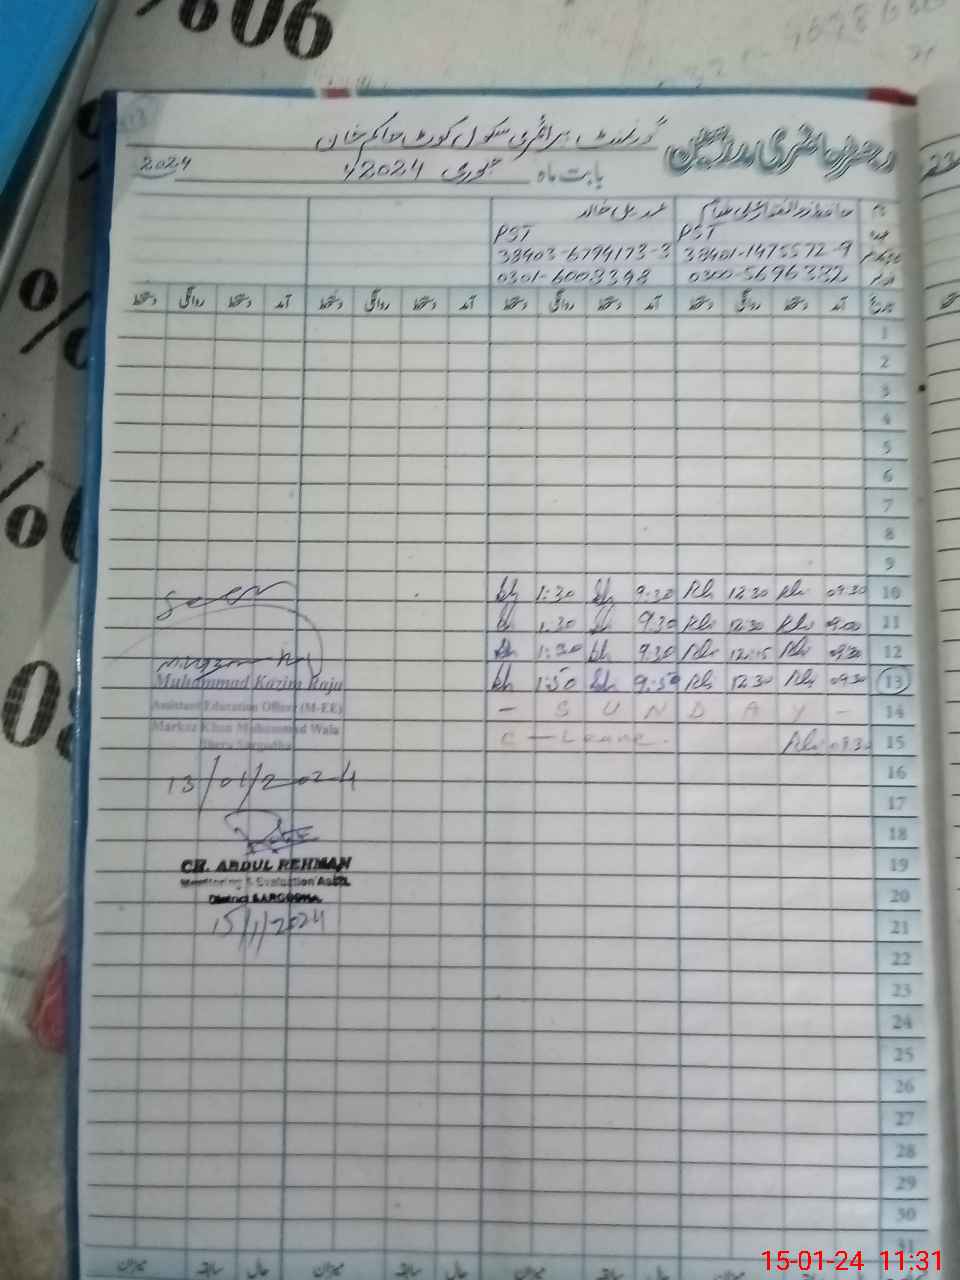 606
گورنمنٹ پرائمری سکول کوٹ حاکم خان
رجسٹر حاضری مدرسین
2024
بابت ماہ جنوری 1/2024
نام
عدیل خالد
PST PST
38403-6794173-3 38401-1475572-9
0301-6003398 0300-5696332
دستخط روانگی دستخط آمد دستخط روانگی دستخط آمد دستخط روانگی دستخط آمد دستخط روانگی دستخط آمد تاریخ
1
2
3
4
5
6
7
8
9
1:30 9:30 12:30 09:30 10
1:30 9:30 12:30 09:00 11
1:30 9:30 12:15 09:30 12
1:30 9:30 12:30 09:30 13
- S U N D A Y - 14
C - Leave. 09:30 15
16
17
18
19
20
21
22
23
24
25
26
27
28
29
30
31
Seen
Muhammad Kazim Raja
Assistant Education Officer (M-EE)
Markaz Khan Muhammad Wala
13/01/2024
CH. ABDUL REHMAN
Monitoring & Evaluation Asstt.
District SARGODHA.
15/1/2024
میزان سابقہ حال میزان سابقہ حال میزان سابقہ حال میزان سابقہ
15-01-24 11:31